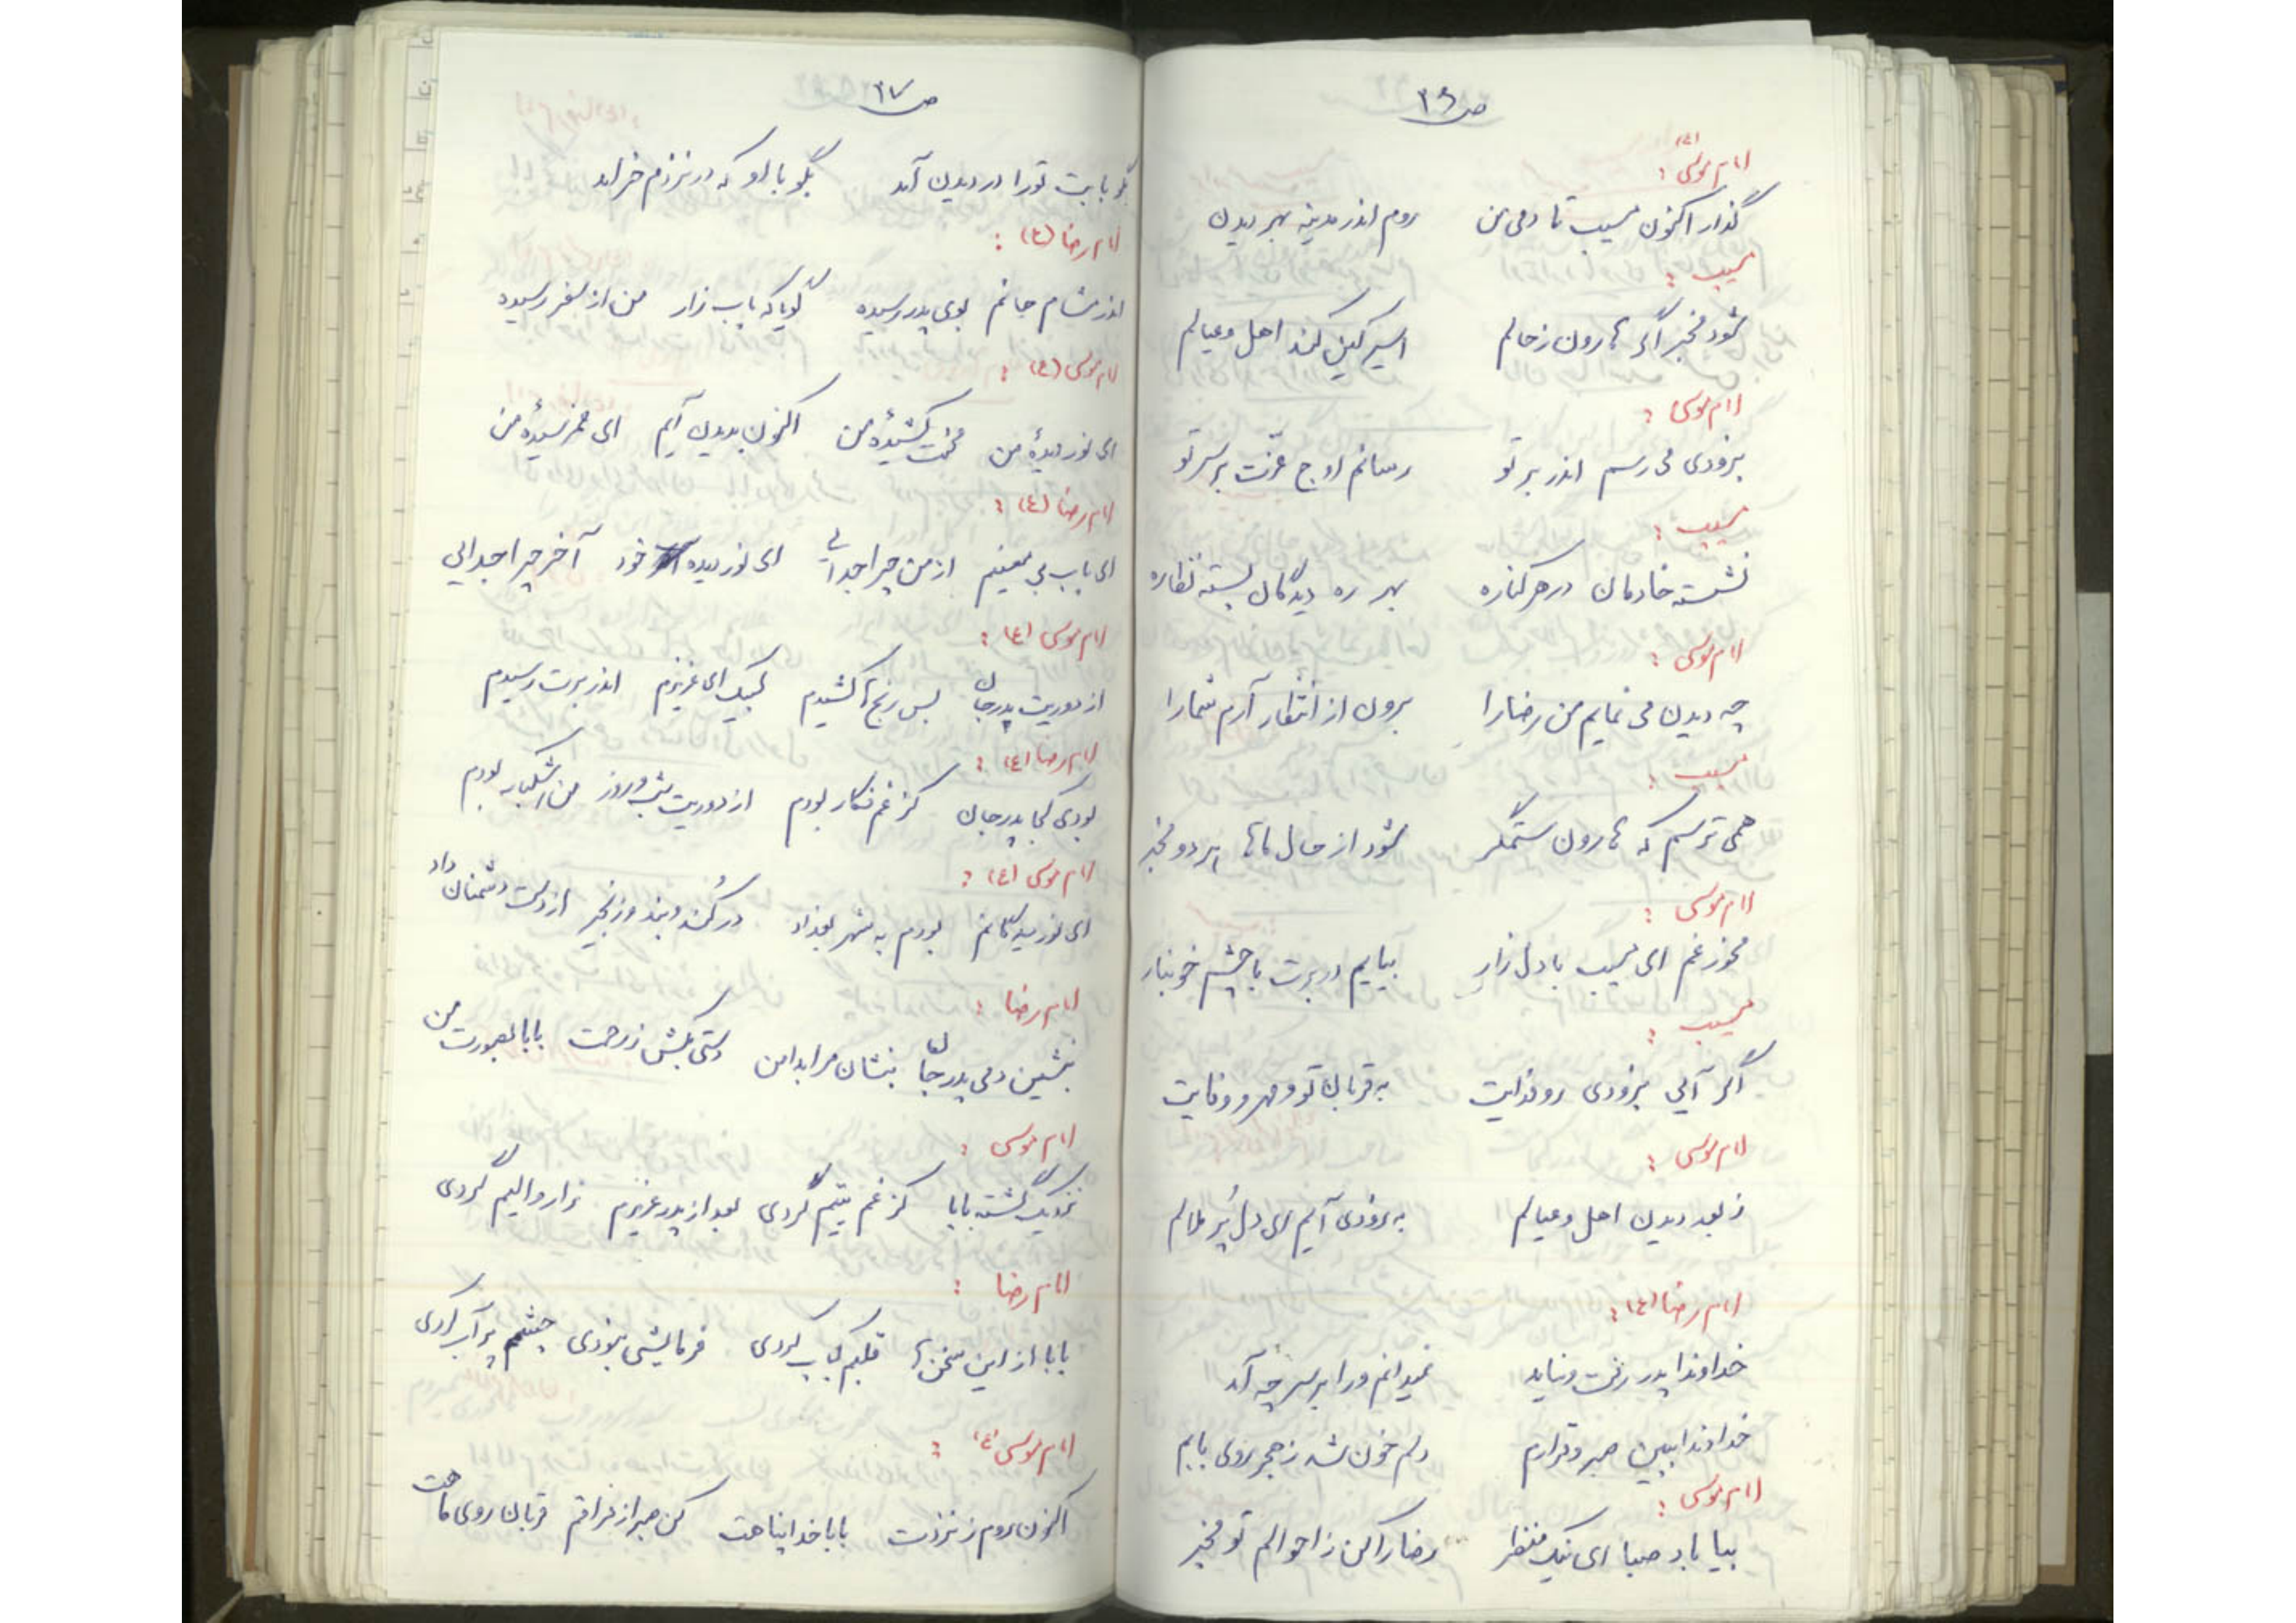 ص ۲۶
امام موسی (ع) :
گذار اکنون مسیب تا دمی من روم اندر مدینه بهر دیدن
مسیب :
شود مخبر اگر هارون ز حالم اسیر کین کند اهل و عیالم
امام موسی :
بزودی می رسم اندر بر تو رسانم اوج عزّت بر سر تو
مسیب :
نشسته خادمان در هر کناره بهر ره دیدگان بسته نظاره
امام موسی :
چه دیدن می نمایم من رضا را برون از انتظار آرم شما را
مسیب :
همی ترسم که هارون ستمگر شود از حال ماها هر دو مخبر
امام موسی :
مخور غم ای مسیب با دل زار بیایم در برت با چشم خونبار
مسیب :
اگر آئی بزودی رو فدایت به قربان تو و مهر و وفایت
امام موسی :
ز بعد دیدن اهل و عیالم به زودی آیم ای دل پُر ملالم
امام رضا (ع) :
خداوندا پدر رفت و نیاید نمیدانم ورا بر سر چه آمد
خداوندا ببین صبر و قرارم دلم خون شد ز هجر روی بابم
امام موسی :
بیا باد صبا ای نیک منظر رضا را کن ز احوالم تو مخبر
ص ۲۷
بگو بابت تو را در دیدن آمد بگو با او که در نزدم خرامد
امام رضا (ع) :
اندر مشام جانم بوی پدر رسیده گویا که باب زار من از سفر رسیده
امام موسی (ع) :
ای نور دیدهٔ من محنت کشیدهٔ من اکنون بدیدن آیم ای غمرسیدهٔ من
امام رضا (ع) :
ای باب بی معینم از من چرا جدائی ای نور دیده خود آخر چرا جدائی
امام موسی (ع) :
از دوریت پدرجان بس رنج ها کشیدم لبیک ای عزیزم اندر برت رسیدم
امام رضا (ع) :
بودی کجا پدرجان کز غم فکار بودم از دوریت شب و روز من اشکبار بودم
امام موسی (ع) :
ای نور دیدگانم بودم به شهر بغداد در کُند و بند و زنجیر از دست دشمنان داد
امام رضا :
بنشین دمی پدر جان بنشان مرا بدامن دستی بکش ز رحمت بابا بصورت من
امام موسی :
نزدیک گشته بابا کز غم یتیم گردی بعد از پدر عزیزم زار و الیم گردی
امام رضا :
بابا از این سخن ها قلبم کباب کردی فرمایشی نمودی چشمم پر آب کردی
امام موسی (ع) :
اکنون روم ز نزدت بابا خدا پناهت کن صبر از فراقم قربان روی ماهت